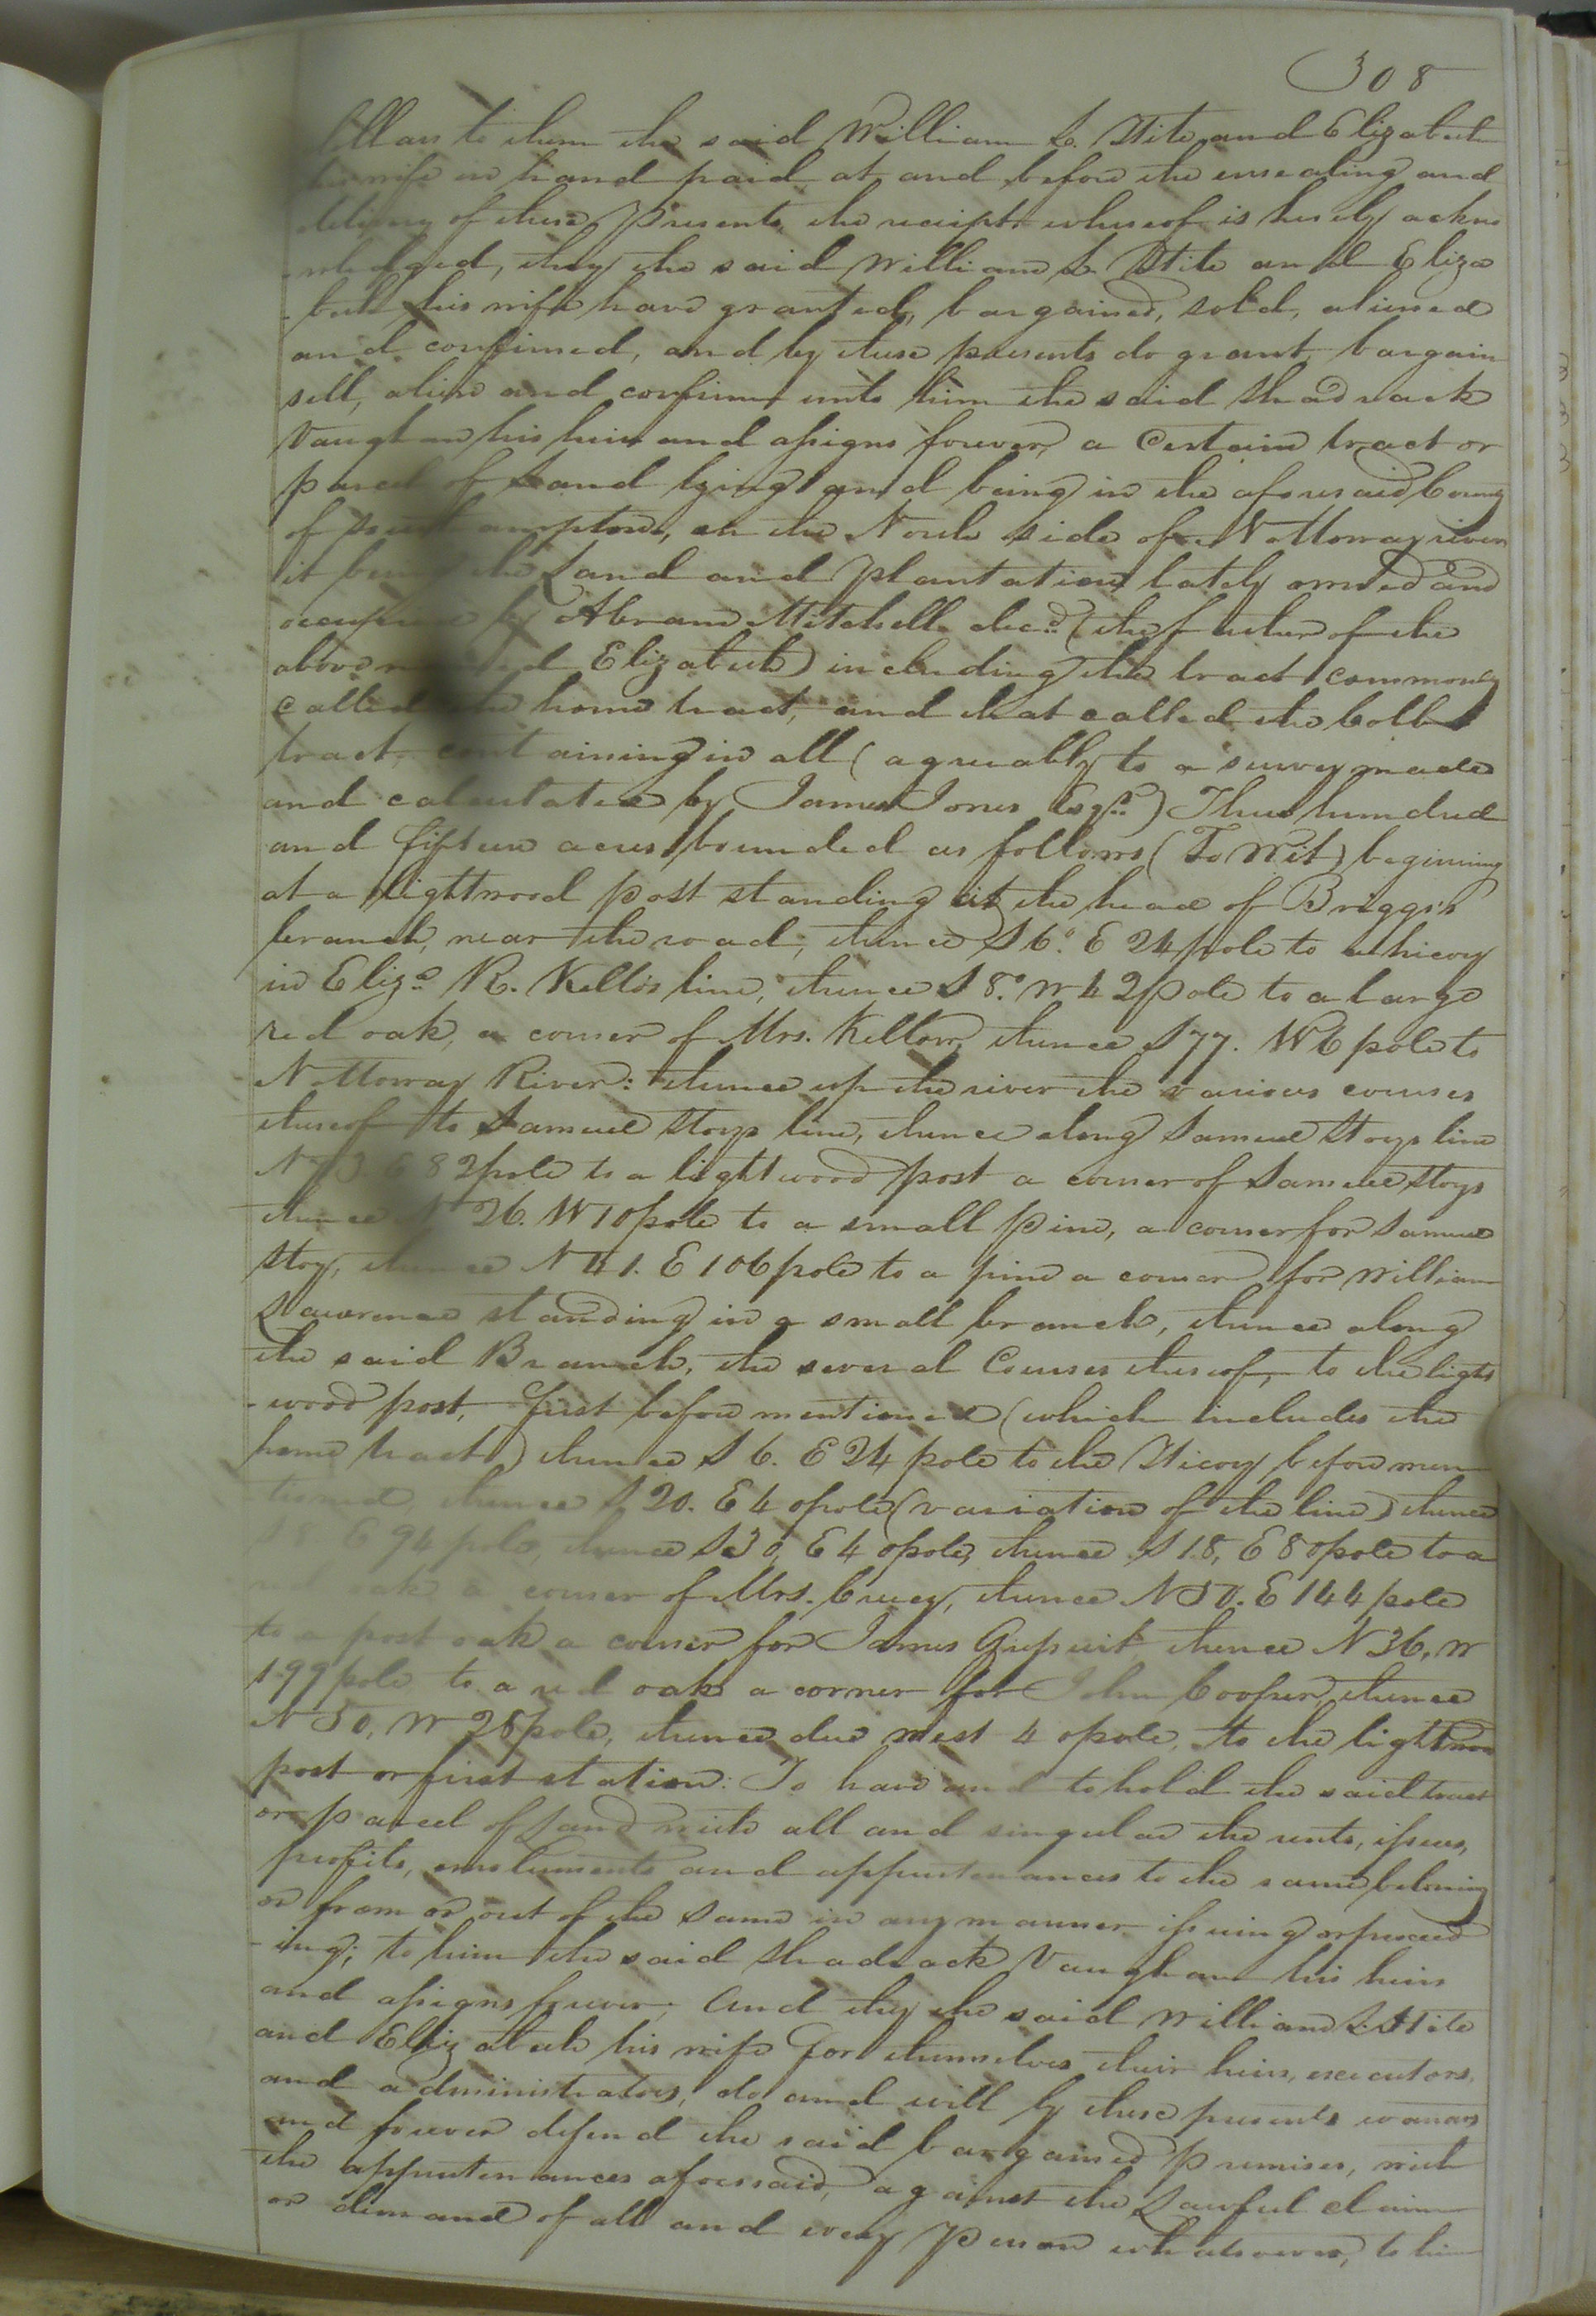 308
Dollars to them the said William L. Stite and Elizabeth
his wife in hand paid at and before the ensealing and
delivery of these Presents, the receipt whereof is hereby ackno
-wledged, they the said William L. Stite and Eliza
-beth his wife have granted, bargained, sold, aliened
and confirmed, and by these presents do grant, bargain
sell, alien and confirm unto him the said Shadrack
Vaughan his heirs and assigns forever, a Certain tract or
parcel of Land lying and being in the aforesaid County
of Southampton, on the North side of Nottoway river
it being the Land and Plantation lately owned and
occupied by Abram Mitchell decd. (the father of the
above named Elizabeth) including the tract commonly
called the home tract, and that called the Cobb
tract, containing in all (agreeably to a survey made
and calculated by James Jones Esqr.) Three hundred
and fifteen acres bounded as follows (To Wit) beginning
at a lightwood post standing at the head of Briggs's
branch, near the road, thence S 6° E 24 pole to a hicory
in Eliza. R. Kello's line, thence S 8° W 42 pole to a large
red oak, a corner of Mrs. Kellow, thence S 77. W 6 pole to
Nottoway River: thence up the river the various courses
thereof to Samuel Storys line, thence along Samuel Storys line
E 82 pole to a lightwood post a corner of Samuel Storys
thence N 26. W 10 pole to a small pine, a corner for Samuel
Story, thence N 41. E 106 pole to a pine a corner for William
Lawrence standing in a small branch, thence along
the said Branch, the several Courses thereof, to the light
-wood post, first before mentioned (which includes the
home tract) thence S 6. E 24 pole to the Hicory before men
-tioned, thence S 20. E 40 pole (variation of the line) thence
E 94 pole, thence S 30, E 40 pole, thence S 18, E 80 pole to a
red oak a corner of Mrs. Crucy, thence N 50. E 144 pole
to a post oak a corner for James Gresswit thence N 36, W
199 pole to a red oak a corner for John Cooper, thence
N 50, W 28 pole, thence due west 40 pole, to the lightwood
post or first station: To have and to hold the said tract
or parcel of Land with all and singular the rents, issues,
profits, emoluments and appurtenances to the same belonging
or from or out of the same in any manner issuing or proceed
-ing; to him the said Shadrack Vaughan his heirs
and assigns forever; And they the said William L. Stite
and Elizabeth his wife for themselves their heirs, executors,
and administrators, do and will by these presents warrant
and forever defend the said bargained Premises, with
the appurtenances aforesaid, against the Lawful claim
or demand of all and every Person whatsoever, to him